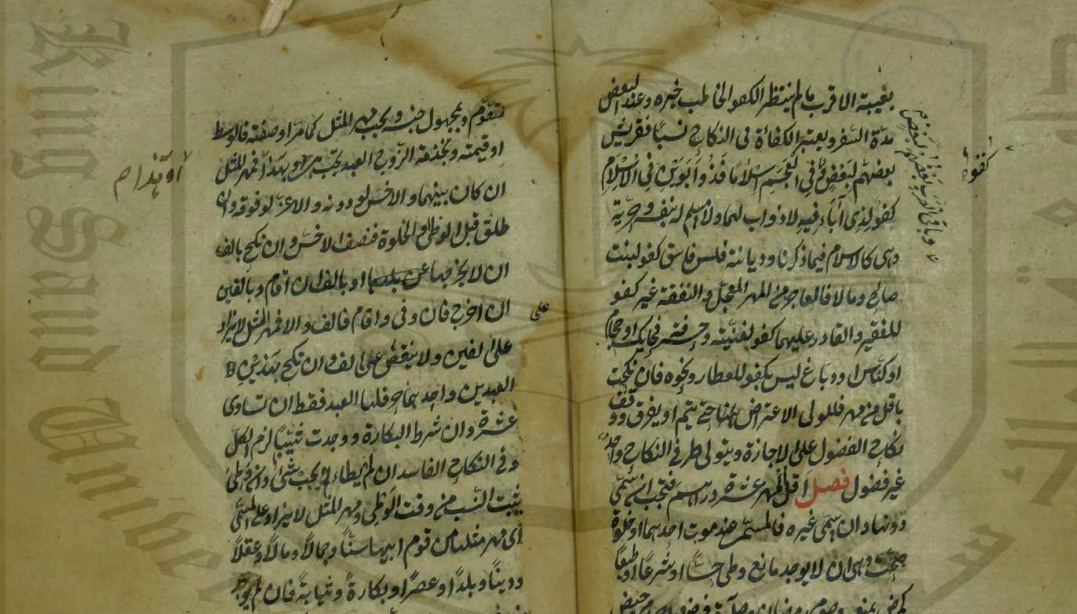 بغيبة الاقرب ما لم ينتظر الكفو الخاطب خبره وعند البعض
مدة السفر ويعتبر الكفاءة في النكاح نسبا فقريش
بعضهم لبعض وفي العجم اسلاما فذو ابوين في الاسلام
كفو لذي آباء فيه لا ذو اب لهما ولا مسلم بنفسه وحرية
وهي كالاسلام فيما ذكرنا وديانة فليس فاسق كفو لبنت
صالح ومالا فالعاجز عن المهر المعجل والنفقة غير كفو
للفقيرة والقادر عليهما كفو لغنية وحرفة فحايك او حجام
او كناس او دباغ ليس بكفو للعطار ونحوه فان نكحت
باقل من مهر فللولي الاعتراض هنا حتى يتم او يفرق ووقف
نكاح الفضول على الاجازة ويتولى طرفي النكاح واحد
غير فضول فصل اقل المهر عشرة دراهم فتجب ان سمى
دونها وان سمى غيره فالمسمى عند موت احدهما او خلوة
صحت وهي ان لا يوجد مانع وطى حسا او شرعا او طبعا
كفو
متقوم وبمجهول جنسه يجب مهر المثل كما مر او صفته فالوسط
او قيمته وبخدمة الزوج العبد تجب هي وبهذا فمهر المثل
ان كان بينهما والاخس لو دونه والاعز لو فوقه وان
طلق قبل الوطى والخلوة فنصف الاخس وان نكح بالف
ان لا يخرجها او بالف ان اقام وبالفين
ان اخرج فان وفى واقام فالف والا فمهر المثل لا يزاد
على
على الفين ولا ينقص على الف وان نكح بهذين
العبدين واحدهما حر فلها العبد فقط ان تساوى
عشرة وان شرط البكارة ووجدت ثيبا لزم الكل
وفي النكاح الفاسد ان لم يطاء لا يجب شئ وان وطئ
يثبت النسب من وقت الوطى ومهر المثل لا يزاد على المسمى
اى مهر مثلها من قوم ابيها سنا وجمالا ومالا وعقلا
ودينا وبلدا وعصرا وبكارة وثيابة فان لم يوجد